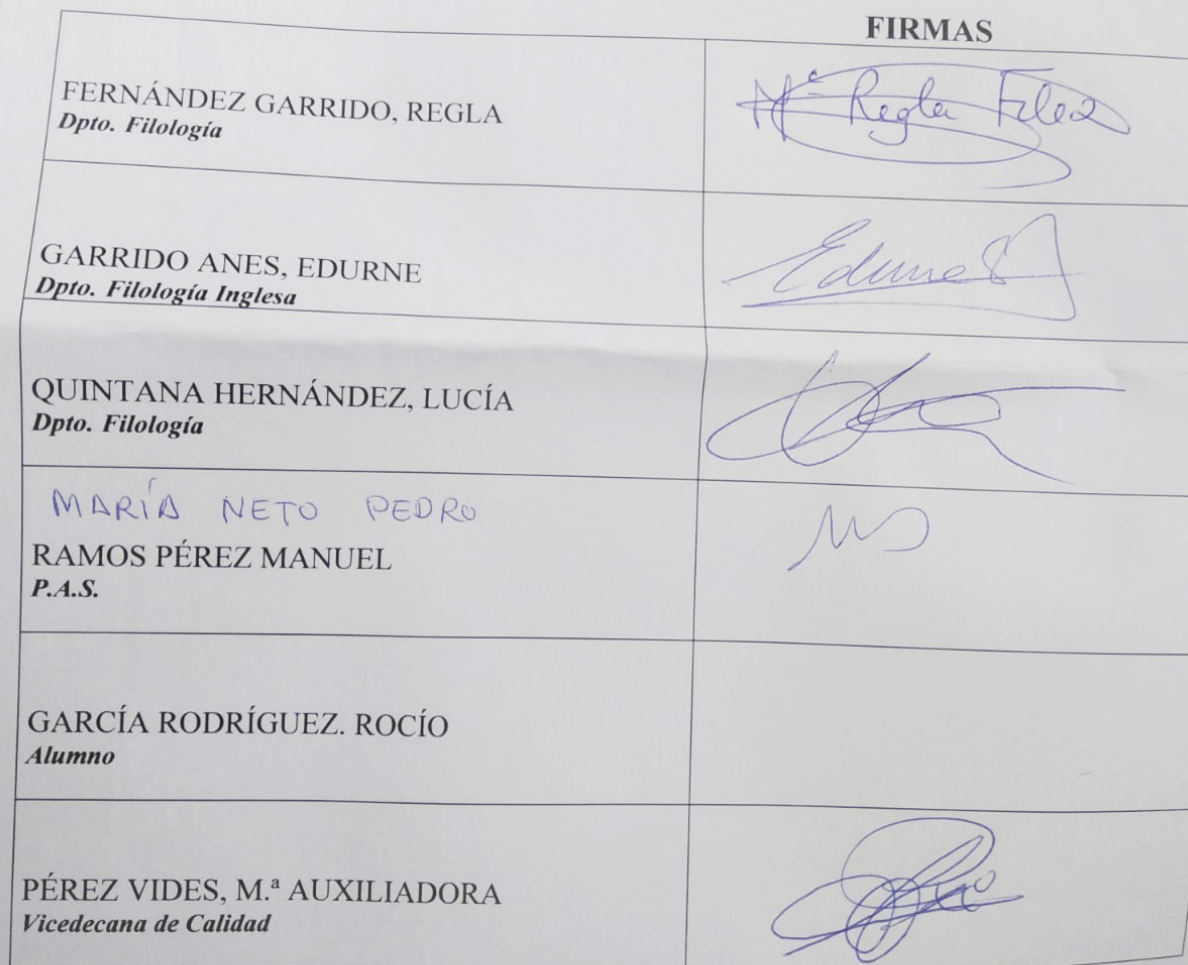 FIRMAS
FERNÁNDEZ GARRIDO, REGLA
Dpto. Filología
Mª Regla Fdez
GARRIDO ANES, EDURNE
Dpto. Filología Inglesa
Edurne
QUINTANA HERNÁNDEZ, LUCÍA
Dpto. Filología
MARÍA NETO PEDRO
RAMOS PÉREZ MANUEL
P.A.S.
GARCÍA RODRÍGUEZ. ROCÍO
Alumno
PÉREZ VIDES, M.ª AUXILIADORA
Vicedecana de Calidad